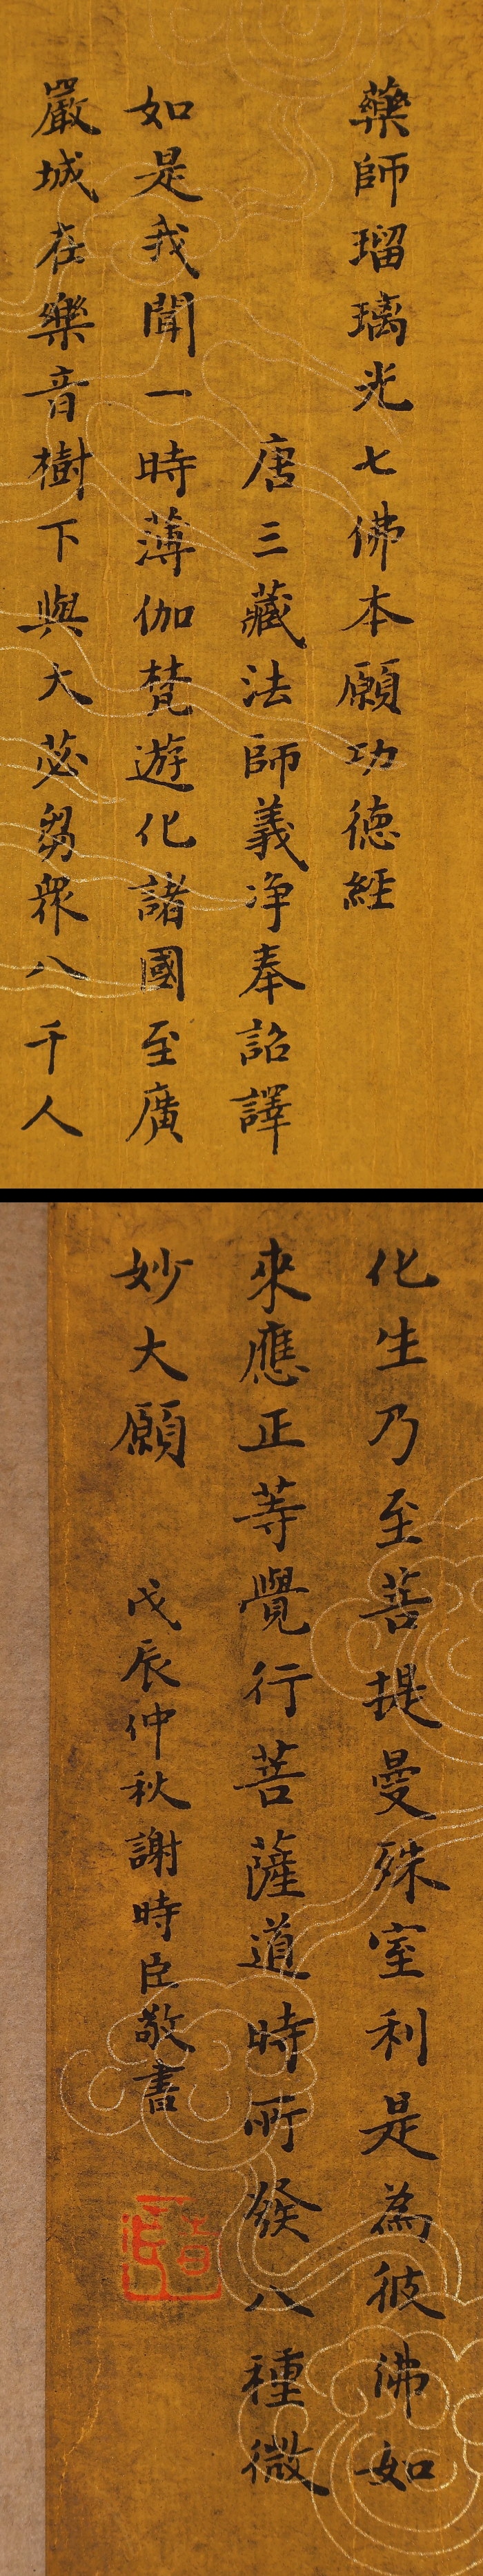 藥師瑠璃光七佛本願功德經
唐三藏法師義淨奉詔譯
如是我聞一時薄伽梵遊化諸國至廣
嚴城在樂音樹下與大苾芻眾八千人
化生乃至菩提曼殊室利是為彼佛如
來應正等覺行菩薩道時所發八種微
妙大願
戊辰仲秋謝時臣敬書